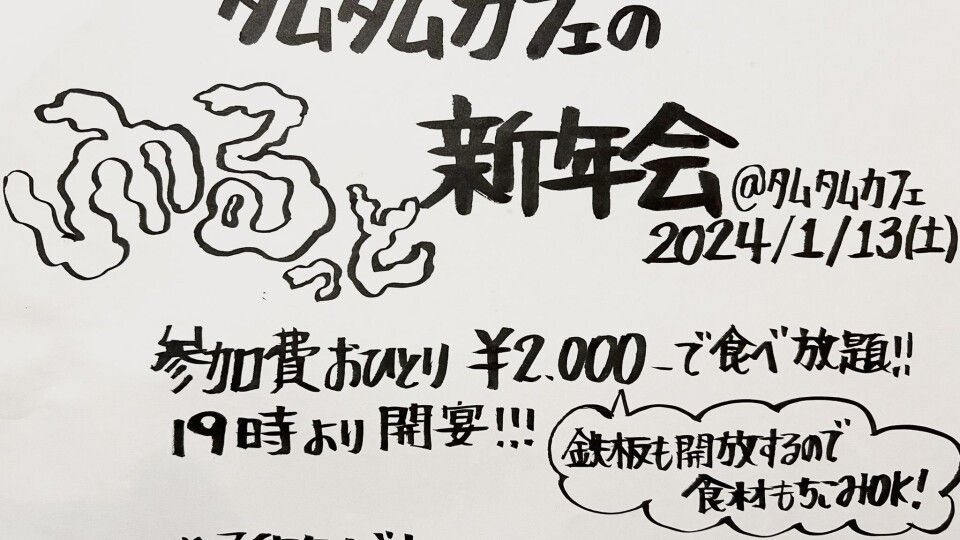 タムタムカフェの
ゆるっと新年会
@タムタムカフェ
2024/1/13(土)
参加費おひとり ¥2.000-で食べ放題!!
19時より開宴!!!
鉄板も開放するので
食材もちこみOK!